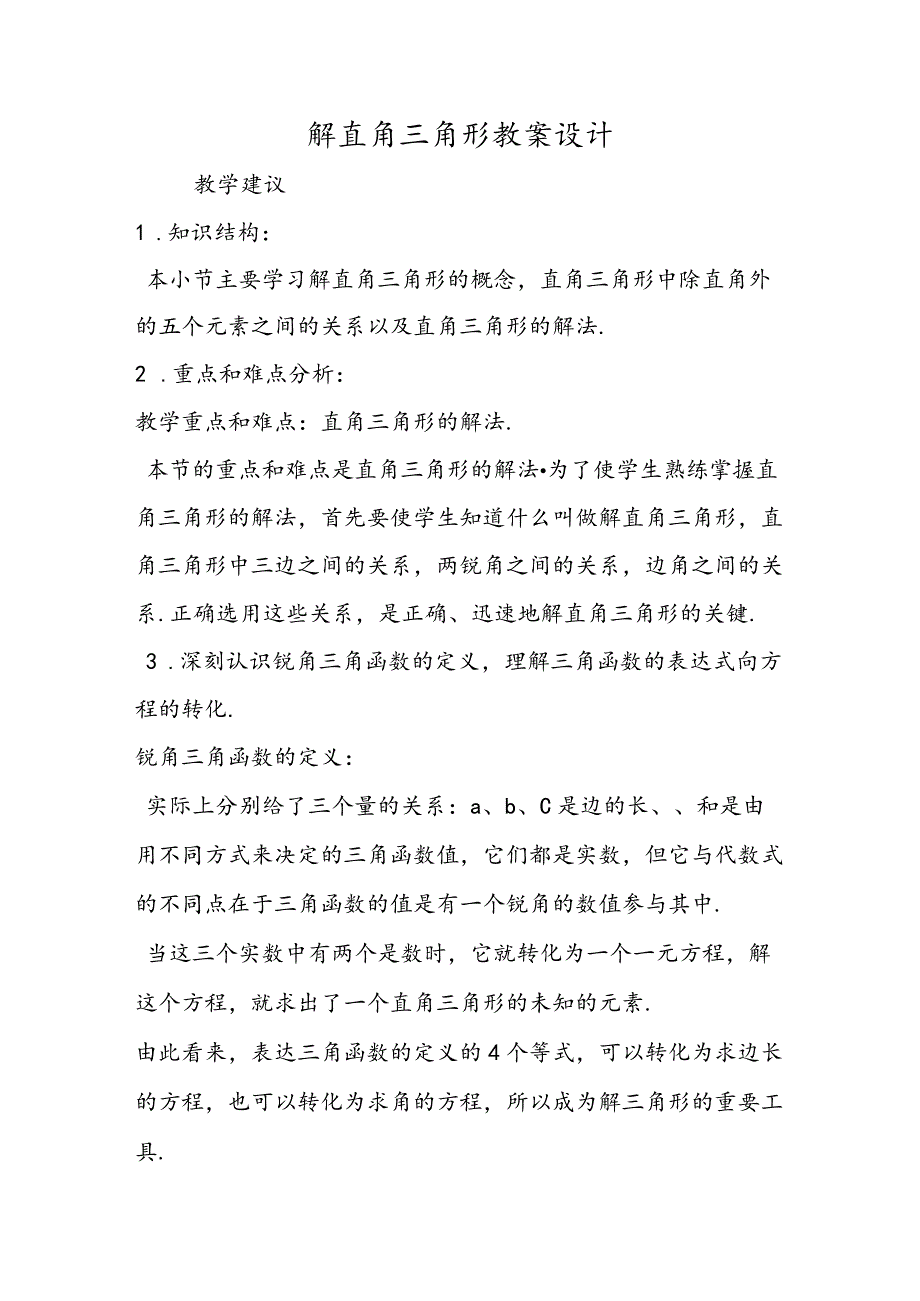 解直角三角形教案设计
教学建议
1 .知识结构：
本小节主要学习解直角三角形的概念，直角三角形中除直角外
的五个元素之间的关系以及直角三角形的解法.
2 .重点和难点分析：
教学重点和难点：直角三角形的解法.
本节的重点和难点是直角三角形的解法•为了使学生熟练掌握直
角三角形的解法，首先要使学生知道什么叫做解直角三角形，直
角三角形中三边之间的关系，两锐角之间的关系，边角之间的关
系.正确选用这些关系，是正确、迅速地解直角三角形的关键.
3 .深刻认识锐角三角函数的定义，理解三角函数的表达式向方
程的转化.
锐角三角函数的定义：
实际上分别给了三个量的关系：a、b、C是边的长、、和是由
用不同方式来决定的三角函数值，它们都是实数，但它与代数式
的不同点在于三角函数的值是有一个锐角的数值参与其中.
当这三个实数中有两个是数时，它就转化为一个一元方程，解
这个方程，就求出了一个直角三角形的未知的元素.
由此看来，表达三角函数的定义的4个等式，可以转化为求边长
的方程，也可以转化为求角的方程，所以成为解三角形的重要工
具.